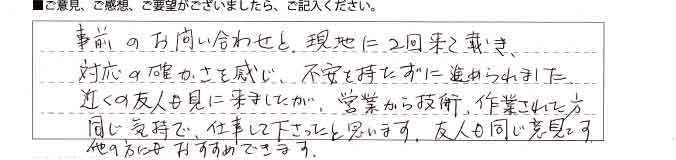 ■ご意見、ご感想、ご要望がございましたら、ご記入ください。
事前のお問い合わせと、現地に2回来て戴き、
対応の確かさを感じ、不安を持たずに進められました。
近くの友人も見に来ましたが、営業から技術、作業された方
同じ気持で、仕事して下さったと思います。友人も同じ意見です
他の方にもおすすめできます。